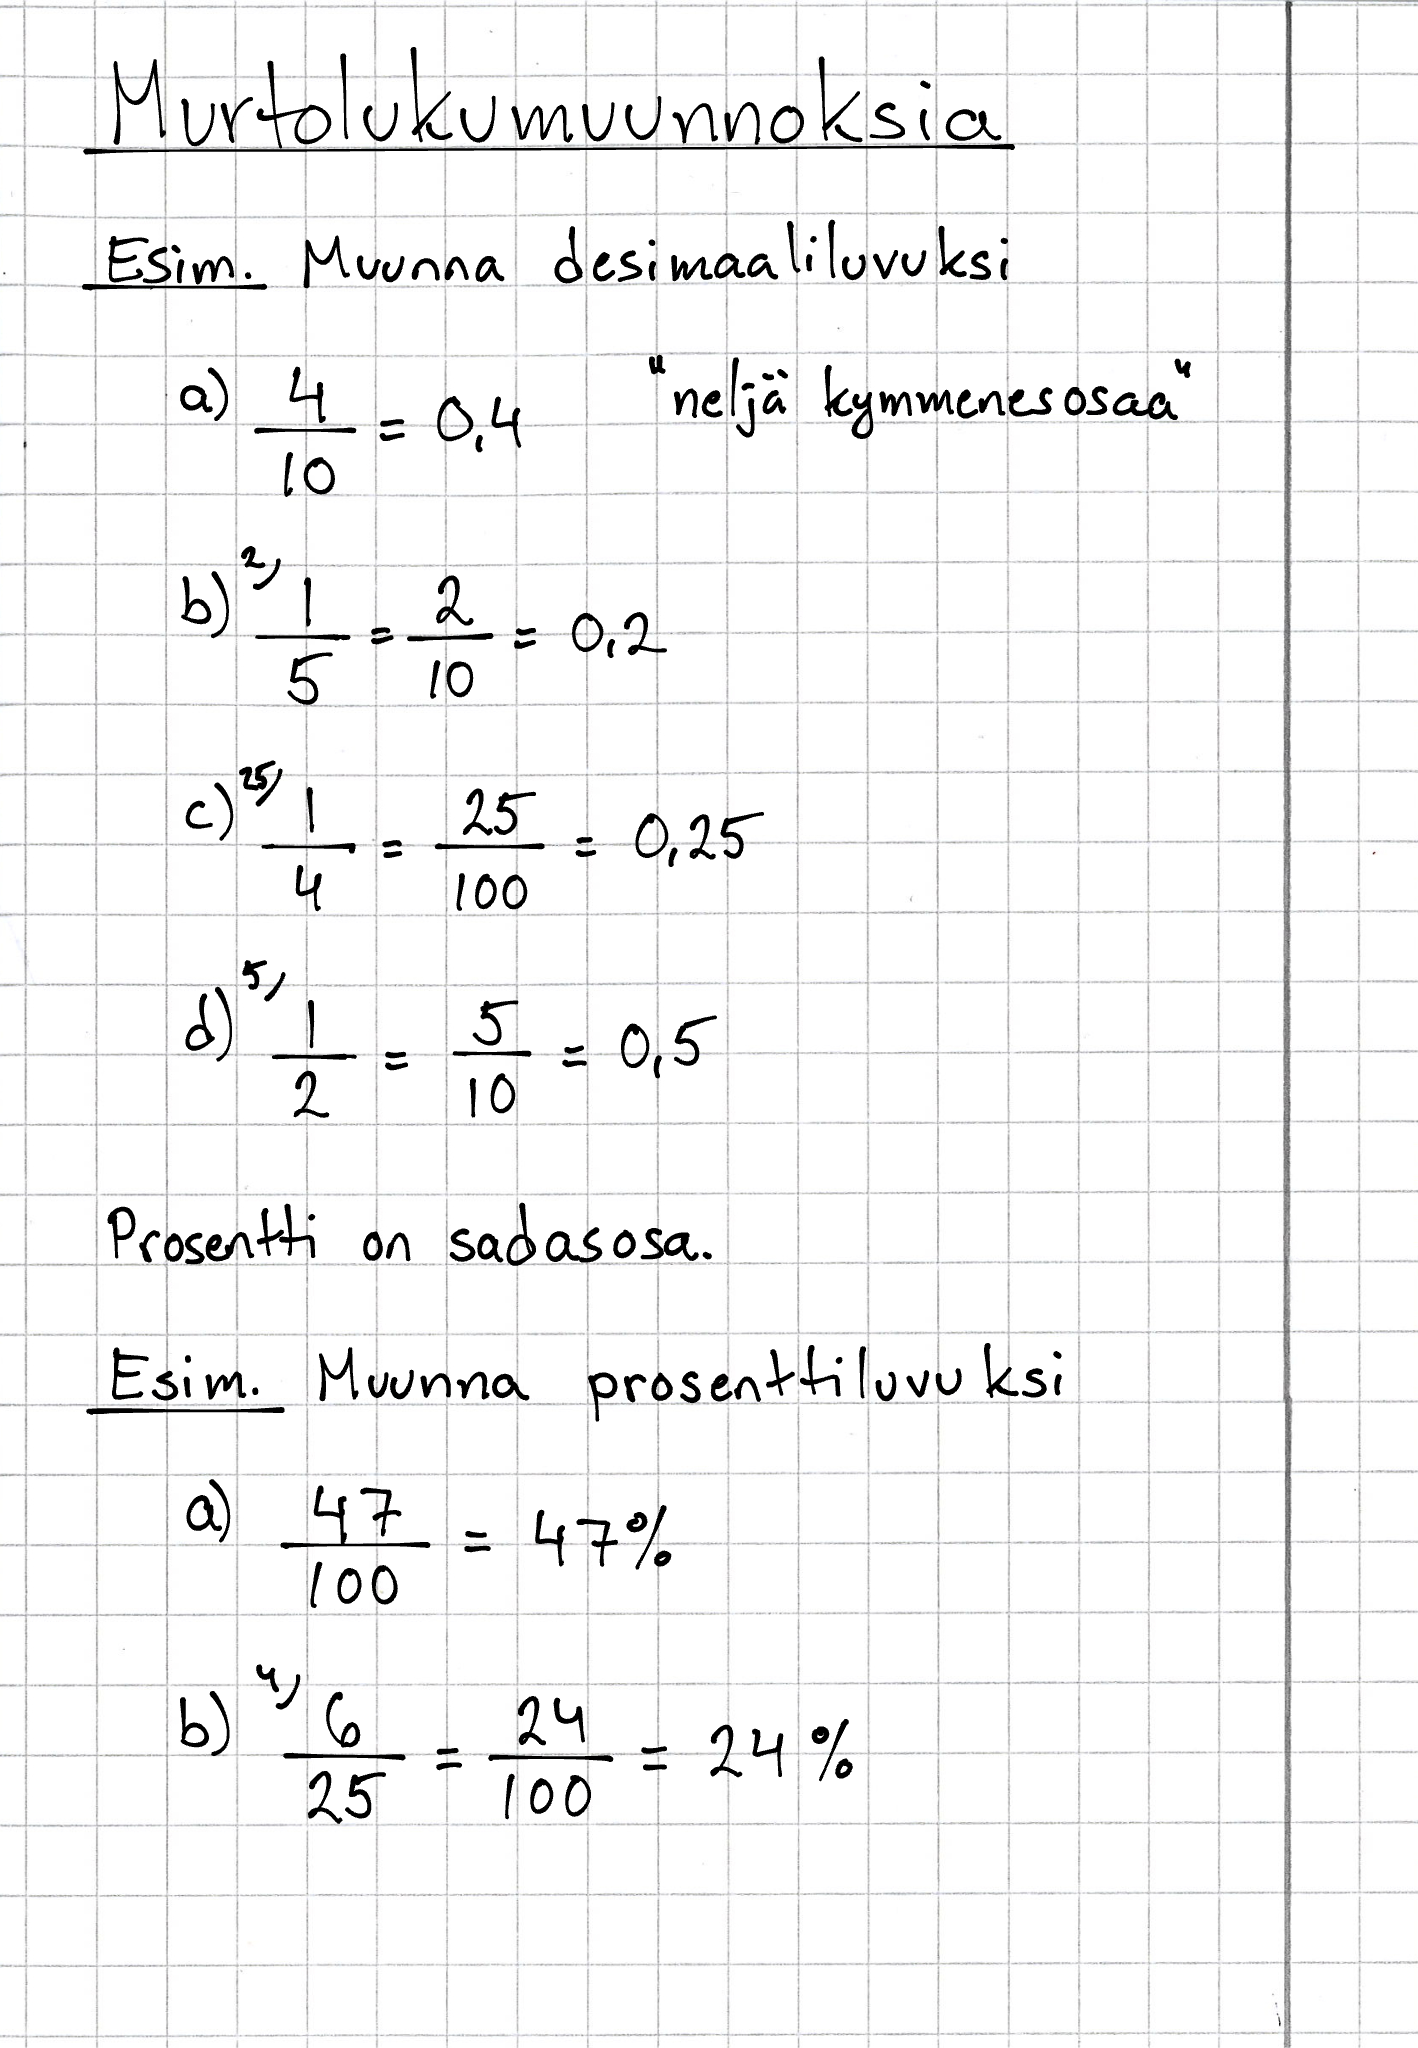 Murtolukumuunnoksia
Esim. Muunna desimaaliluvuksi
a) 4/10 = 0,4 "neljä kymmenesosaa"
b) 2) 1/5 = 2/10 = 0,2
c) 25) 1/4 = 25/100 = 0,25
d) 5) 1/2 = 5/10 = 0,5
Prosentti on sadasosa.
Esim. Muunna prosenttiluvuksi
a) 47/100 = 47%
b) 4) 6/25 = 24/100 = 24 %